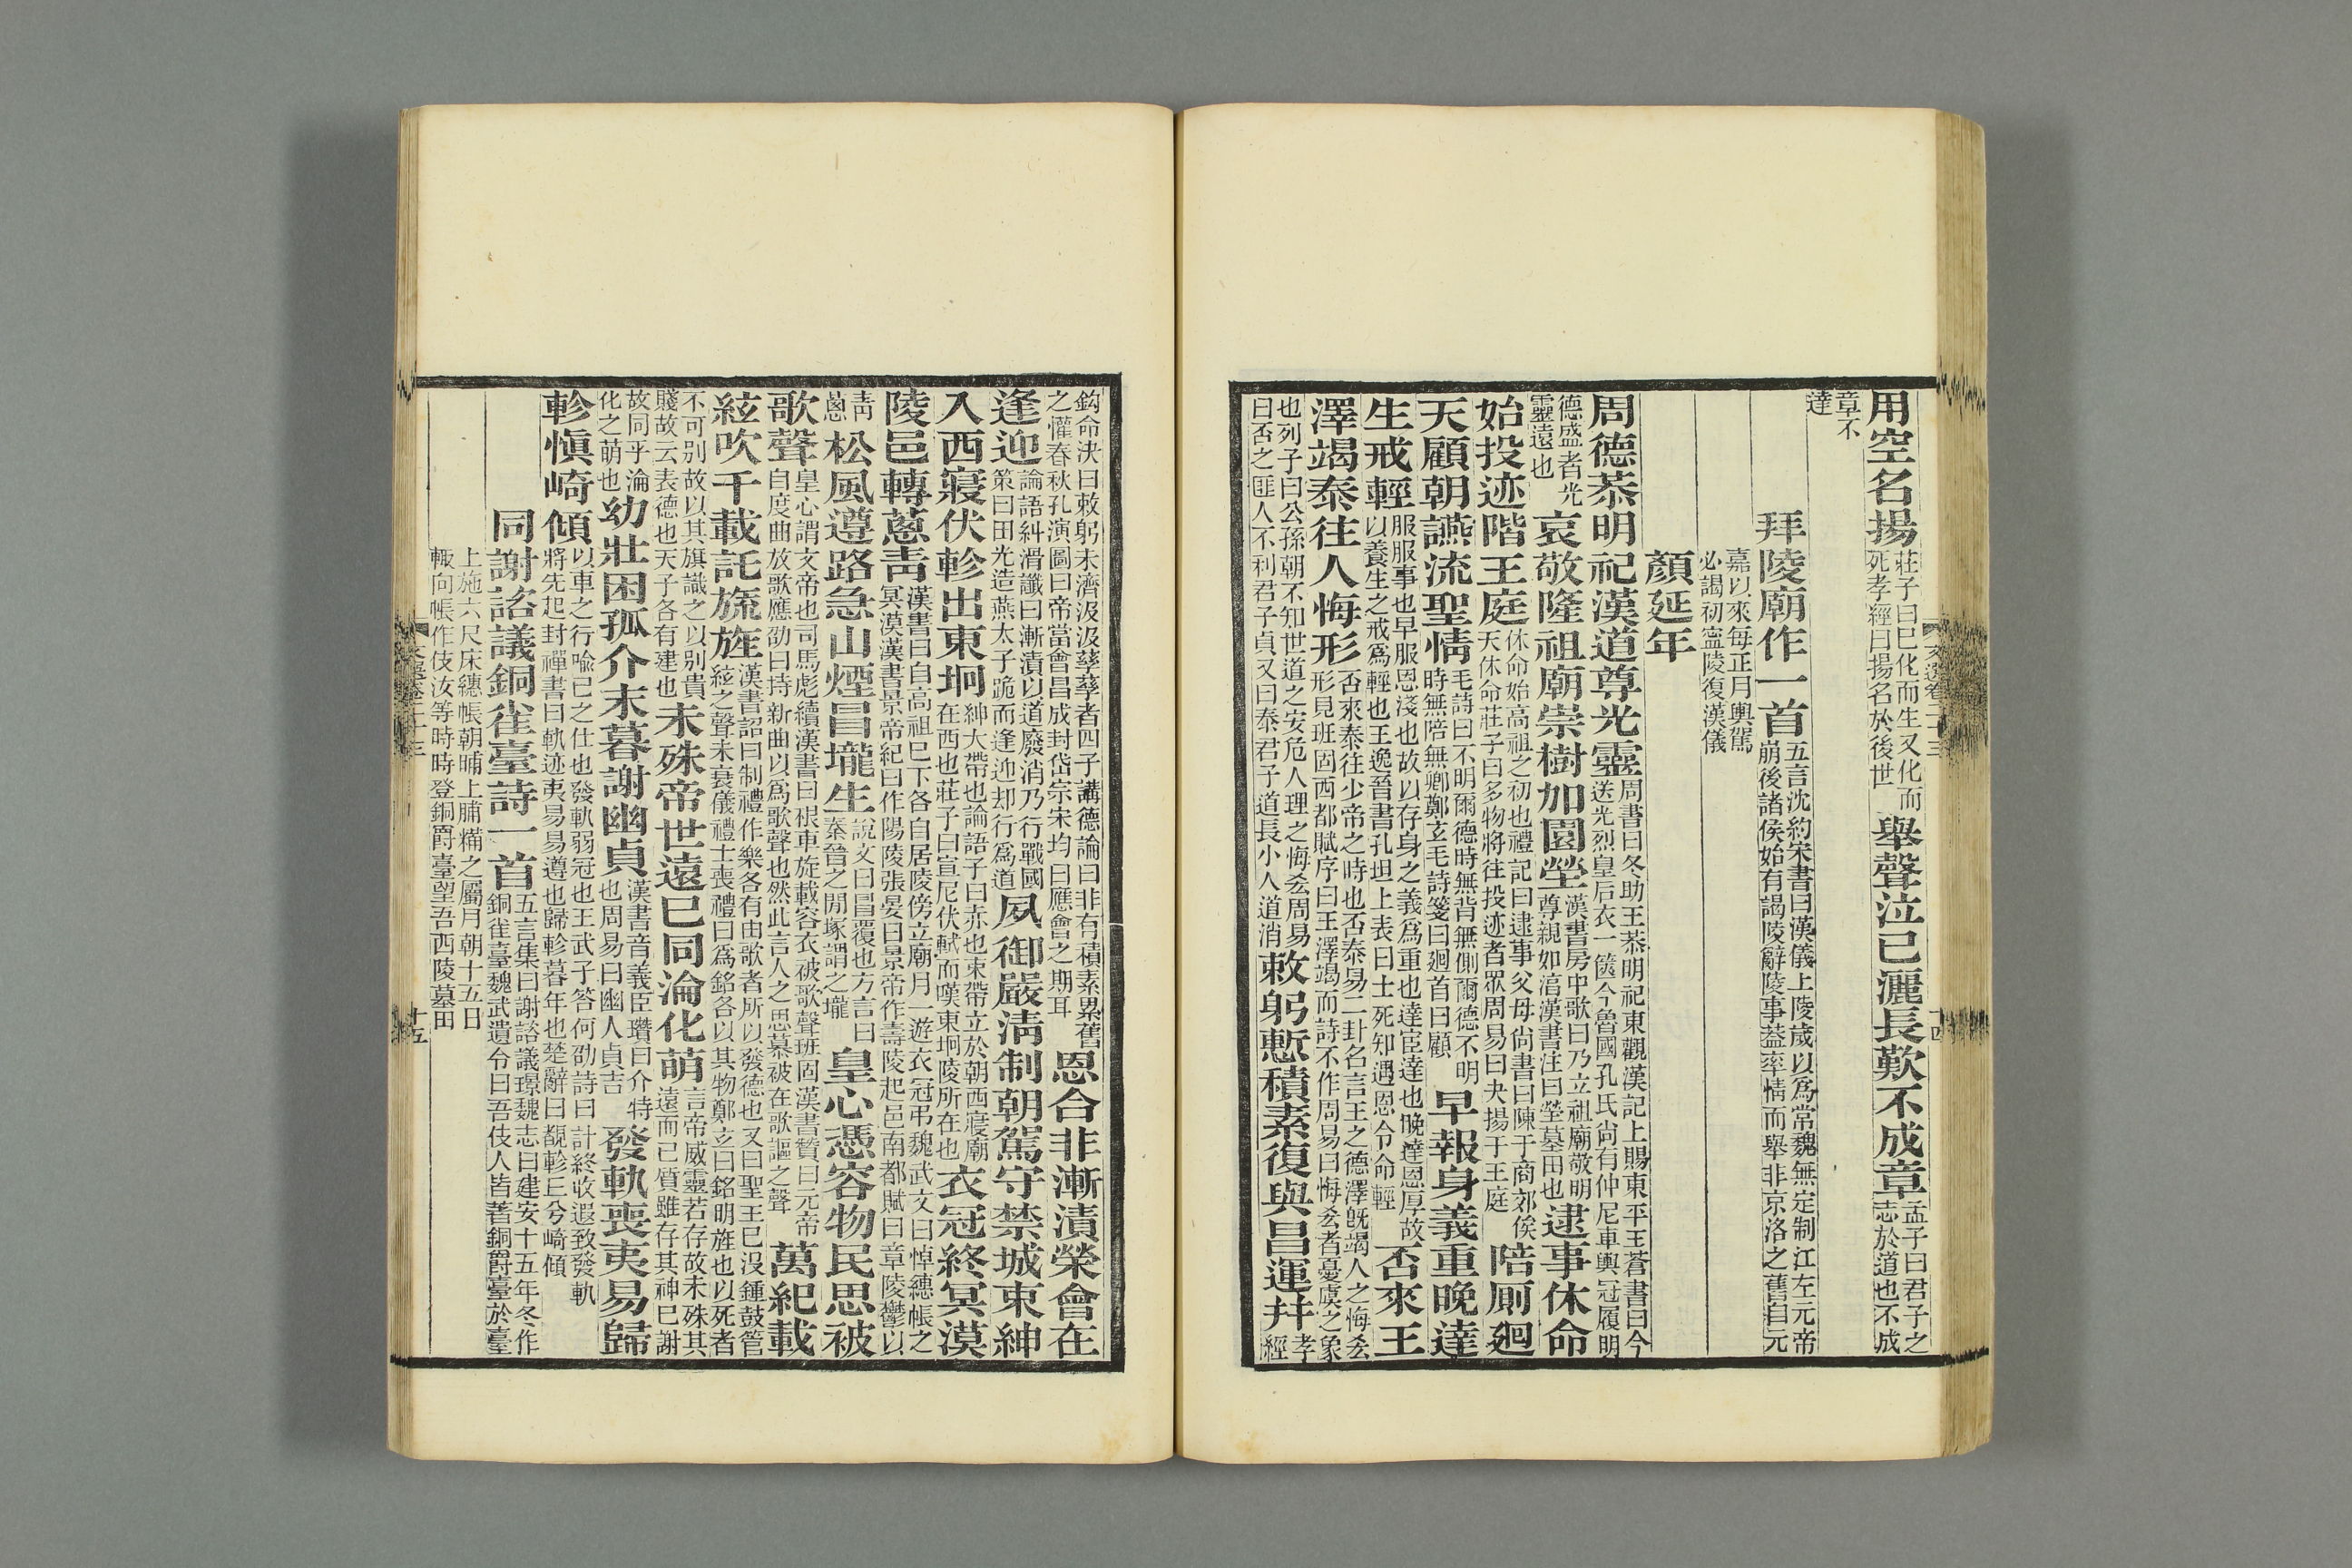 用空名揚莊子曰已化而生又化而死孝經曰揚名於後世舉聲泣已灑長歎不成章孟子曰君子之志於道也不成
章不達
拜陵廟作一首五言沈約宋書曰漢儀上陵歲以爲常魏無定制江左元帝崩後諸侯始有謁陵辭陵事葢率情而舉非京洛之舊自元
嘉以來每正月輿駕必謁初寧陵復漢儀
顏延年
周德恭明祀漢道尊光靈周書曰冬助王恭明祀東觀漢記上賜東平王蒼書曰今送光烈皇后衣一篋今魯國孔氏尚有仲尼車輿冠履明
德盛者光靈遠也哀敬隆祖廟崇樹加園塋漢書房中歌曰乃立祖廟敬明尊親如淳漢書注曰塋墓田也逮事休命
始投迹階王庭休命始高祖之初也禮記曰逮事父母尚書曰陳于商郊俟天休命莊子曰多物將往投迹者眾周易曰夬揚于王庭陪厠廻
天顧朝讌流聖情毛詩曰不明爾德時無背無側爾德不明時無陪無卿鄭玄毛詩箋曰廻首曰顧早報身義重晚達
生戒輕服服事也早服恩淺也故以存身之義爲重也達宦達也晚達恩厚故以養生之戒爲輕也王逸晉書孔坦上表曰士死知遇恩令命輕否來王
澤竭泰往人悔形否來泰往少帝之時也否泰易二卦名言王之德澤旣竭人之悔吝形見班固西都賦序曰王澤竭而詩不作周易曰悔吝者憂虞之象
也列子曰公孫朝不知世道之安危人理之悔吝周易曰否之匪人不利君子貞又曰泰君子道長小人道消敕躬慙積素復與昌運并孝經
文選卷二十三
十四
鈎命決曰敕躬未濟汲汲孳孳者四子講德論曰非有積素累舊之懽春秋孔演圖曰帝當會昌成封岱宗宋均曰應會之期耳恩合非漸漬榮會在
逢迎論語糾滑讖曰漸漬以道廢消乃行戰國策曰田光造燕太子跪而逢迎却行爲道夙御嚴淸制朝駕守禁城束紳
入西寢伏軫出東坰紳大帶也論語子曰赤也束帶立於朝西寢廟在西也莊子曰宣尼伏軾而嘆東坰陵所在也衣冠終冥漠
陵邑轉蔥靑漢書曰自高祖已下各自居陵傍立廟月一遊衣冠弔魏武文曰悼繐帳之冥漠漢書景帝紀曰作陽陵張晏曰景帝作壽陵起邑南都賦曰章陵鬱以
靑蔥松風遵路急山煙冒壠生說文曰冒覆也方言曰秦晉之閒塚謂之壠皇心憑容物民思被
歌聲皇心謂文帝也司馬彪續漢書曰根車旋載容衣被歌聲班固漢書贊曰元帝自度曲放歌應劭曰持新曲以爲歌聲也然此言人之思慕被在歌謳之聲萬紀載
絃吹千載託旒旌漢書詔曰制禮作樂各有由歌者所以發德也又曰聖王已没鍾鼓管絃之聲未衰儀禮士喪禮曰爲銘各以其物鄭玄曰銘明旌也以死者
不可別故以其旗識之以別貴賤故云表德也天子各有建也未殊帝世遠已同淪化萌言帝威靈若存故未殊其遠而已質雖存其神已謝
故同乎淪化之萌也幼壯困孤介末暮謝幽貞漢書音義臣瓚曰介特也周易曰幽人貞吉發軌喪夷易歸
軫愼崎傾以車之行喩己之仕也發軌弱冠也王武子答何劭詩曰計終收遐致發軌將先起封禪書曰軌迹夷易易遵也歸軫暮年也楚辭曰覩軫丘兮崎傾
同謝諮議銅雀臺詩一首五言集曰謝諮議璟魏志曰建安十五年冬作銅雀臺魏武遺令曰吾伎人皆著銅爵臺於臺
上施六尺床繐帳朝晡上脯糒之屬月朝十五日輙向帳作伎汝等時時登銅爵臺望吾西陵墓田
十五